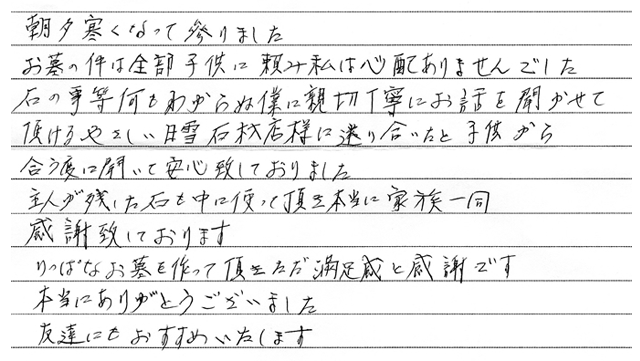 朝夕寒くなって参りました
お墓の件は全部子供に頼み私は心配ありませんでした
石の事等何もわからぬ僕に親切丁寧にお話を聞かせて
頂けるやさしい日雪石材店様に巡り合いたと子供から
合う度に聞いて安心致しておりました
主人が残した石も中に使って頂き本当に家族一同
感謝致しております
りっぱなお墓を作って頂きただ満足感と感謝です
本当にありがとうございました
友達にもおすすめいたします